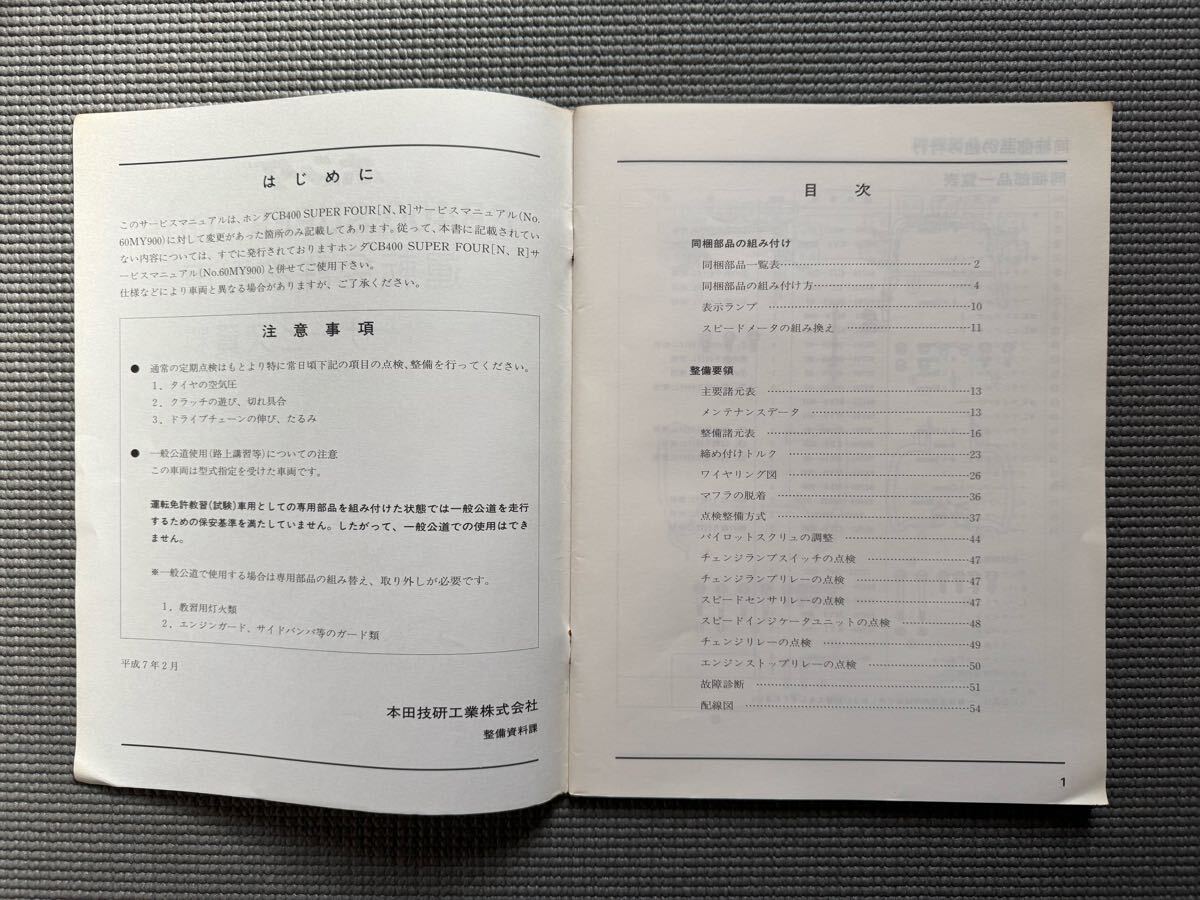 はじめに
このサービスマニュアルは、ホンダCB400 SUPER FOUR[N、R]サービスマニュアル(No.
60MY900)に対して変更があった箇所のみ記載してあります。従って、本書に記載されてい
ない内容については、すでに発行されておりますホンダCB400 SUPER FOUR[N、R]サ
ービスマニュアル(No.60MY900)と併せてご使用下さい。
仕様などにより車両と異なる場合がありますが、ご了承ください。
注意事項
● 通常の定期点検はもとより特に常日頃下記の項目の点検、整備を行ってください。
1．タイヤの空気圧
2．クラッチの遊び、切れ具合
3．ドライブチェーンの伸び、たるみ
● 一般公道使用(路上講習等)についての注意
この車両は型式指定を受けた車両です。
運転免許教習(試験)車用としての専用部品を組み付けた状態では一般公道を走行
するための保安基準を満たしていません。したがって、一般公道での使用はでき
ません。
※一般公道で使用する場合は専用部品の組み替え、取り外しが必要です。
1．教習用灯火類
2．エンジンガード、サイドバンパ等のガード類
平成7年2月
本田技研工業株式会社
整備資料課
目次
同梱部品の組み付け
同梱部品一覧表……………………………2
同梱部品の組み付け方……………………4
表示ランプ……………………………10
スピードメータの組み換え……………………11
整備要領
主要諸元表……………………………13
メンテナンスデータ……………………13
整備諸元表……………………………16
締め付けトルク……………………………23
ワイヤリング図……………………………26
マフラの脱着……………………………36
点検整備方式……………………………37
パイロットスクリュの調整……………………44
チェンジランプスイッチの点検……………………47
チェンジランプリレーの点検……………………47
スピードセンサリレーの点検……………………47
スピードインジケータユニットの点検……………………48
チェンジリレーの点検……………………49
エンジンストップリレーの点検……………………50
故障診断……………………………51
配線図……………………………54
1